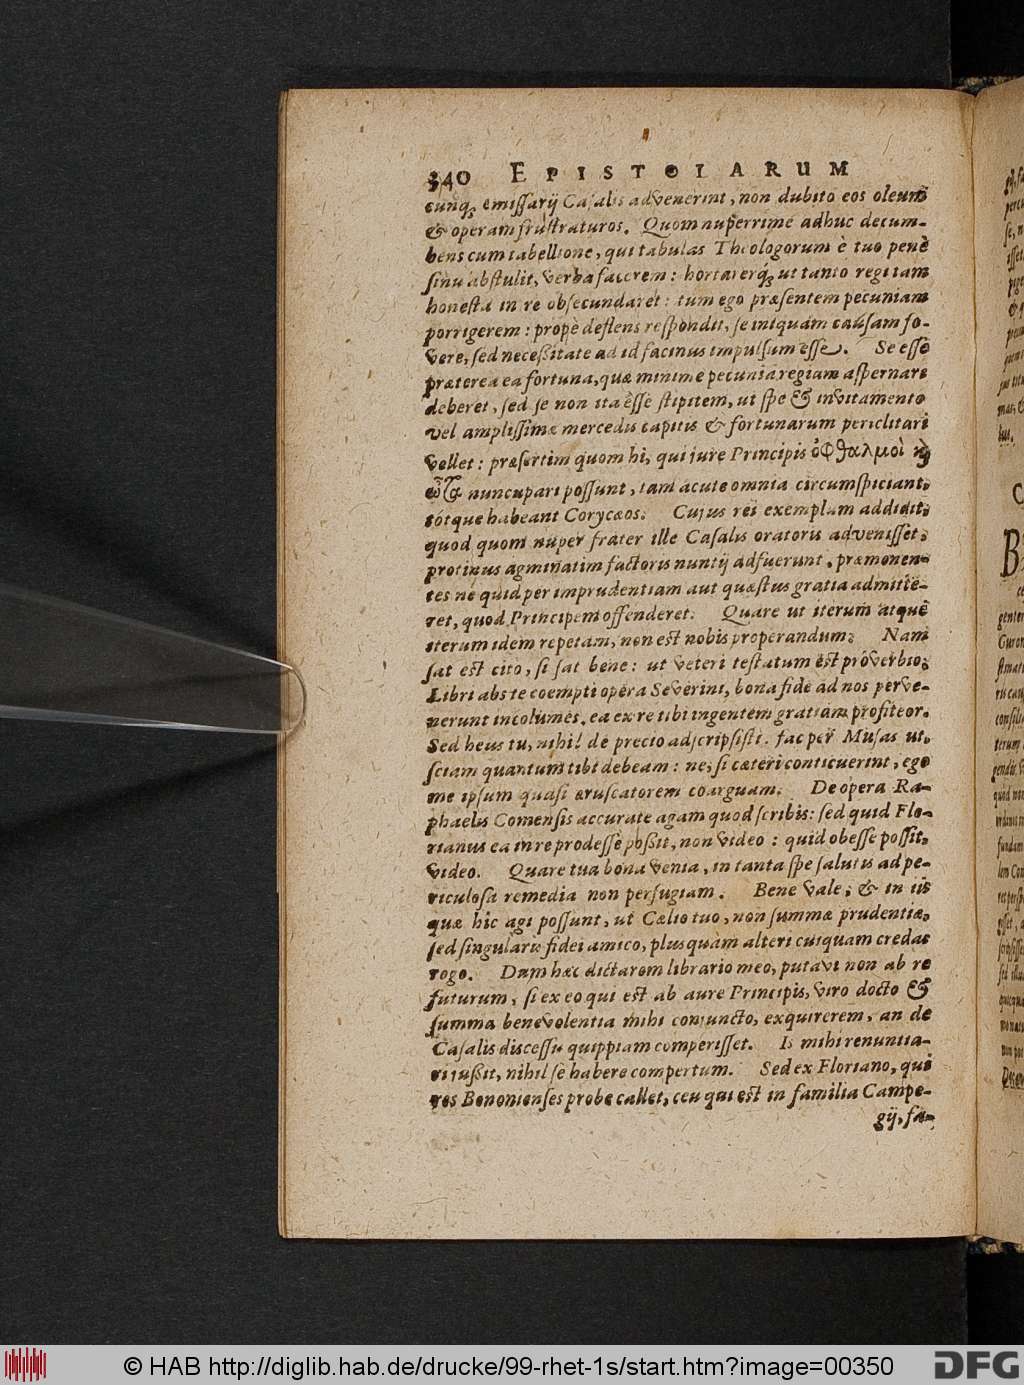 340 EPISTOLARUM
cunq; emissarij Casalis advenerint, non dubito eos oleum
& operam frustraturos. Quom nuperrime adhuc decum-
bens cum tabellione, qui tabulas Theologorum è tuo penè
sinu abstulit, verba facerem: hortarerq; ut tanto regi tam
honesta in re obsecundaret: tum ego præsentem pecuniam
porrigerem: propè deflens respondit, se iniquam causam fo-
vere, sed necessitate ad id facinus impulsum esse. Se esse
præterea ea fortuna, quæ minime pecuniã regiam aspernari
deberet, sed se non ita esse stipitem, ut spe & invitamento
vel amplissimæ mercedis capitis & fortunarum periclitari
vellet: præsertim quom hi, qui jure Principis ὀφθαλμοὶ ϗ
ὦτα nuncupari possunt, tam acute omnia circumspiciant,
tótque habeant Corycæos. Cujus rei exemplum addidit,
quod quom nuper frater ille Casalis oratoris advenisset,
protinus agminatim factoris nuntij adfuerunt, præmonen-
tes ne quid per imprudentiam aut quæstus gratia admitte-
ret, quod Principem offenderet. Quare ut iterum atque
iterum idem repetam, non est nobis properandum. Nam
sat est cito, si sat bene: ut veteri testatum est proverbio.
Libri abs te coempti opera Severini, bona fide ad nos perve-
nerunt incolumes, ea ex re tibi ingentem gratiam profiteor.
Sed heus tu, nihil de precio adscripsisti. fac per Musas ut,
sciam quantum tibi debeam: ne, si cæteri conticuerint, ego
me ipsum quasi æruscatorem coarguam. De opera Ra-
phaelis Comensis accurate agam quod scribis: sed quid Flo-
rianus ea in re prodesse possit, non video: quid obesse possit,
video. Quare tua bona venia, in tanta spe salutis ad pe-
riculosa remedia non perfugiam. Bene Vale, & in iis
quæ hic agi possunt, ut Cælio tuo, non summæ prudentiæ,
sed singularis fidei amico, plus quàm alteri cuiquam credas
rogo. Dum hæc dictarem librario meo, putavi non ab re
futurum, si ex eo qui est ab aure Principis, viro docto &
summa benevolentia mihi conjuncto, exquirerem, an de
Casalis discessu quippiam comperisset. Is mihi renuntia-
ri jußit, nihil se habere compertum. Sed ex Floriano, qui
res Bononienses probe callet, ceu qui est in familia Campe-
gij, fa-
© HAB http://diglib.hab.de/drucke/99-rhet-1s/start.htm?image=00350
DFG